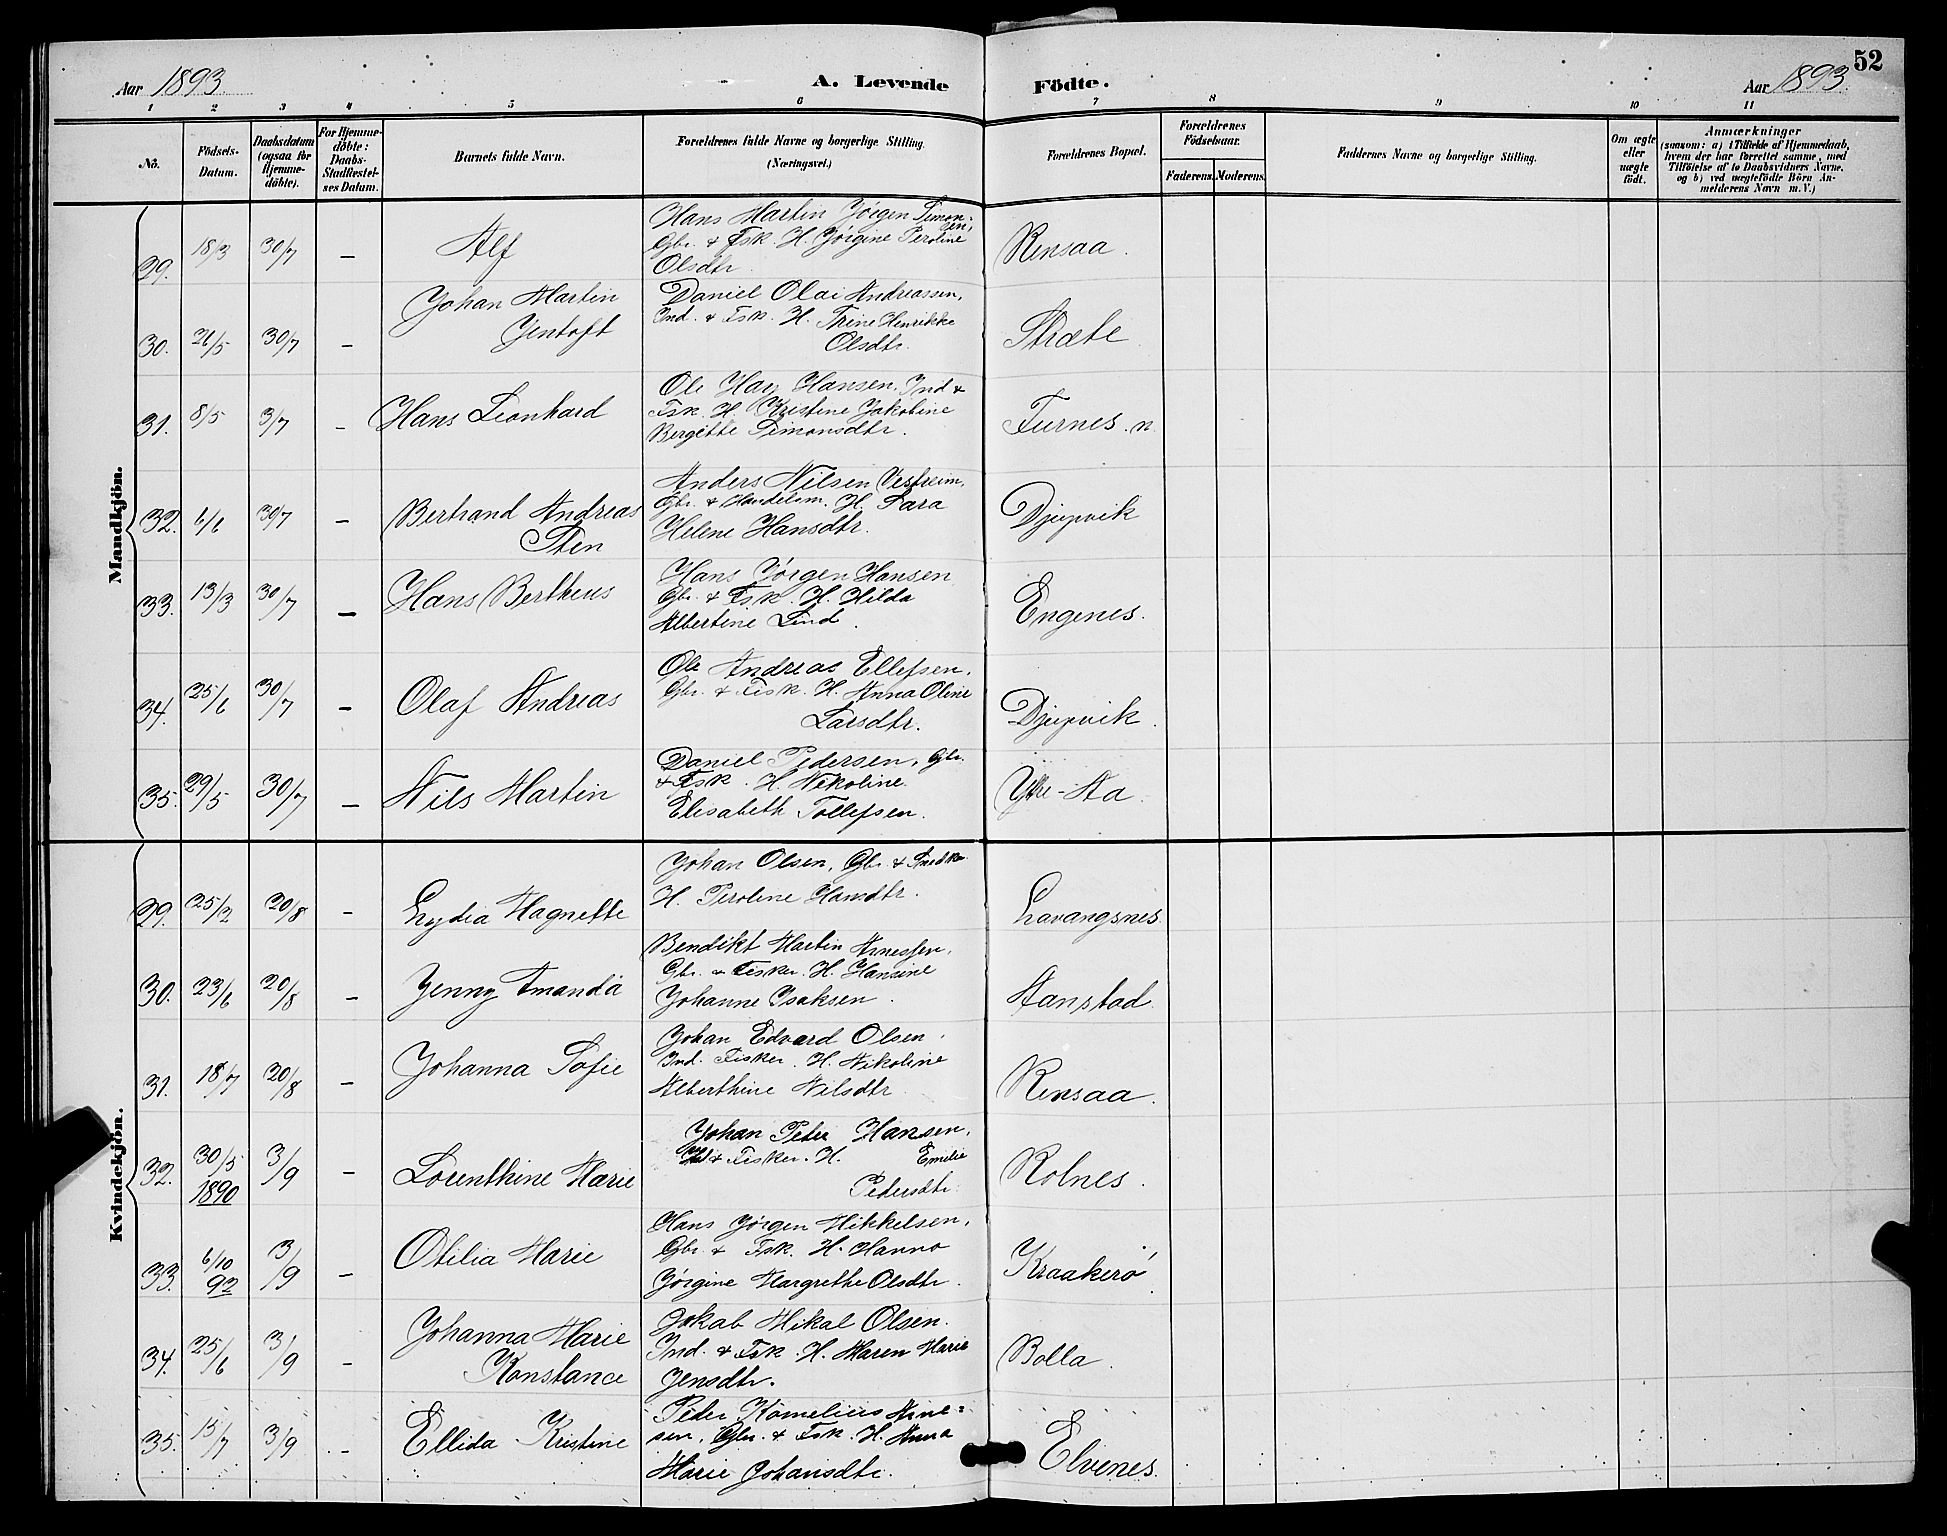 52
Aar 1893. A. Levende Födte. Aar 1893.
1 2 3 4 5 6 7 8 9 10 11
No. Födsels-Datum. Daabsdatum (ogsaa for Hjemmedöbte). For Hjemmedöbte: Daabs-Stadfestelses Datum. Barnets fulde Navn. Forældrenes fulde Navne og borgerlige Stilling. (Næringsvei.) Forældrenes Bopæl. Forældrenes Födselsaar. Faderens. Moderens. Faddernes Navne og borgerlige Stilling. Om ægte eller uægte födt. Anmærkninger (saasom: a) i Tilfælde af Hjemmedaab, hvem der har forrettet samme, med Tilföielse af to Daabsvidners Navne, og b) ved uægtefödte Börn Anmelderens Navn m. V.)
Mandkjön.
29. 18/3 30/7 - Alf
Hans Martin Jörgen Simon-
sen,
Gbr. & Fsk. H. Jörgine Peroline
Olsdtr.
Rensaa.
30. 21/5 30/7 - Johan Martin
Jentoft
Daniel Olai Andreassen,
Ind. & Fsk. H. Trine Henrikke
Olsdtr.
Stræte
31. 8/5 3/7 - Hans Leonhard
Ole Hansen, Ind &
Fsk. H. Kristine Jakobine
Bergitte Simonsdtr.
Furnes. n.
32. 6/6 30/7 - Bertrand Andreas
Sten
Anders Nilsen Vestreim,
Gbr. & Handelsm. H. Sara
Helene Hansdtr.
Djupvik
33. 13/3 30/7 - Hans Bertheus
Hans Jörgen Hansen
Gbr. & Fisk. H. Hilda
Albertine Lind.
Engenes.
34. 25/6 30/7 - Olaf Andreas
Ole Andreas Ellefsen.
Gbr. & Fisk. H. Anna Oline
Larsdtr.
Djupvik.
35. 29/5 30/7 - Nils Martin
Daniel Pedersen, Gbr.
& Fsk. H. Nikoline
Elisabeth Tollefsen.
Ytre-Aa.
Kvindekjön.
29. 25/2 20/8 - Lydia Magnette
Johan Olsen, Gbr. &
H. Peroline Hansdtr.
Lavangsnes
30. 23/6 20/8 - Jenny Amanda
Bendikt Martin Arnessen.
Gbr. & Fisker. H. Hansine
Johanne Isaksen.
Aanstad
31. 18/7 20/8 - Johanna Sofie
Johan Edvard Olsen.
Ind. Fisker. H. Nikoline
Alberthine Nilsdtr.
Rensaa.
32. 30/5 1890 3/9 - Lorenthine Marie
Johan Peder Hansen,
& Fisker. H. Emilie
Pedersdtr.
Rolnes.
33. 6/10 92 3/9 - Otilia Marie
Hans Jörgen Mikkelsen,
Gbr. & Fsk. H. Hanna
Jörgine Margrethe Olsdtr.
Kraakerö
34. 25/6 3/9 - Johanna Marie
Konstance
Jakob Mikal Olsen.
Ind. & Fsk. H. Maren Marie
Jensdtr.
Bolla.
35. 15/7 3/9 - Ellida Kristine
Peder Kornelius Arne-
sen, Gbr. & Fsk. H. Anna
Marie Johansdtr.
Elvenes.